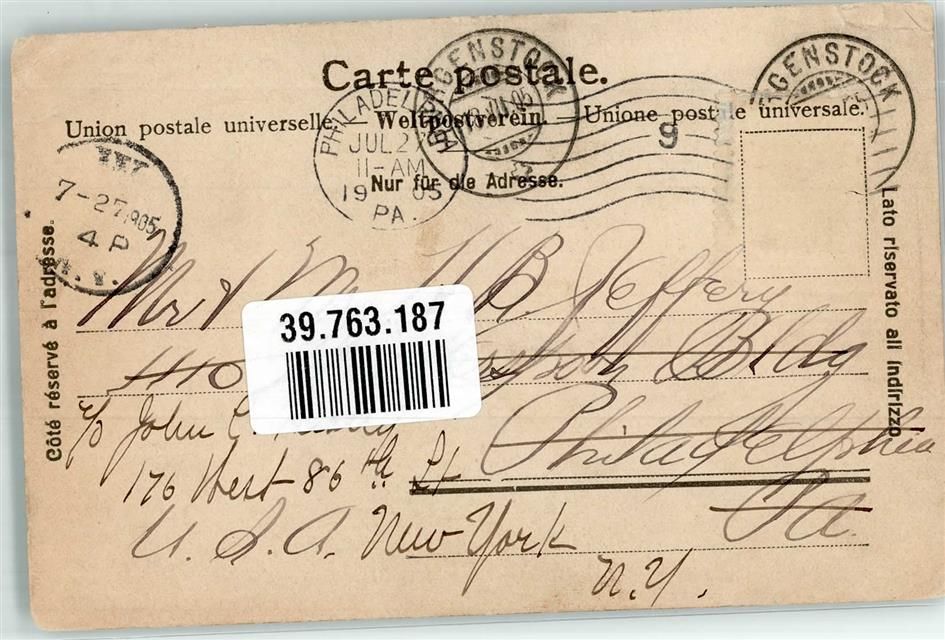 Carte postale.
Union postale universelle. — Weltpostverein. — Unione postale universale.
Nur für die Adresse.
Côté réservé à l'adresse.
Lato riservato ali indirizzo.
BÜRGENSTOCK
BÜRGENSTOCK
PHILADELPHIA
JUL 27
11-AM
1905
PA.
W
7-27 1905
4 P
N.Y.
9
Mr & Mr H B. Jeffery
410 Bldg
Philadelphia
Pa.
39.763.187
c/o John G.
176 West 86th St
U.S.A. New York
N.Y.